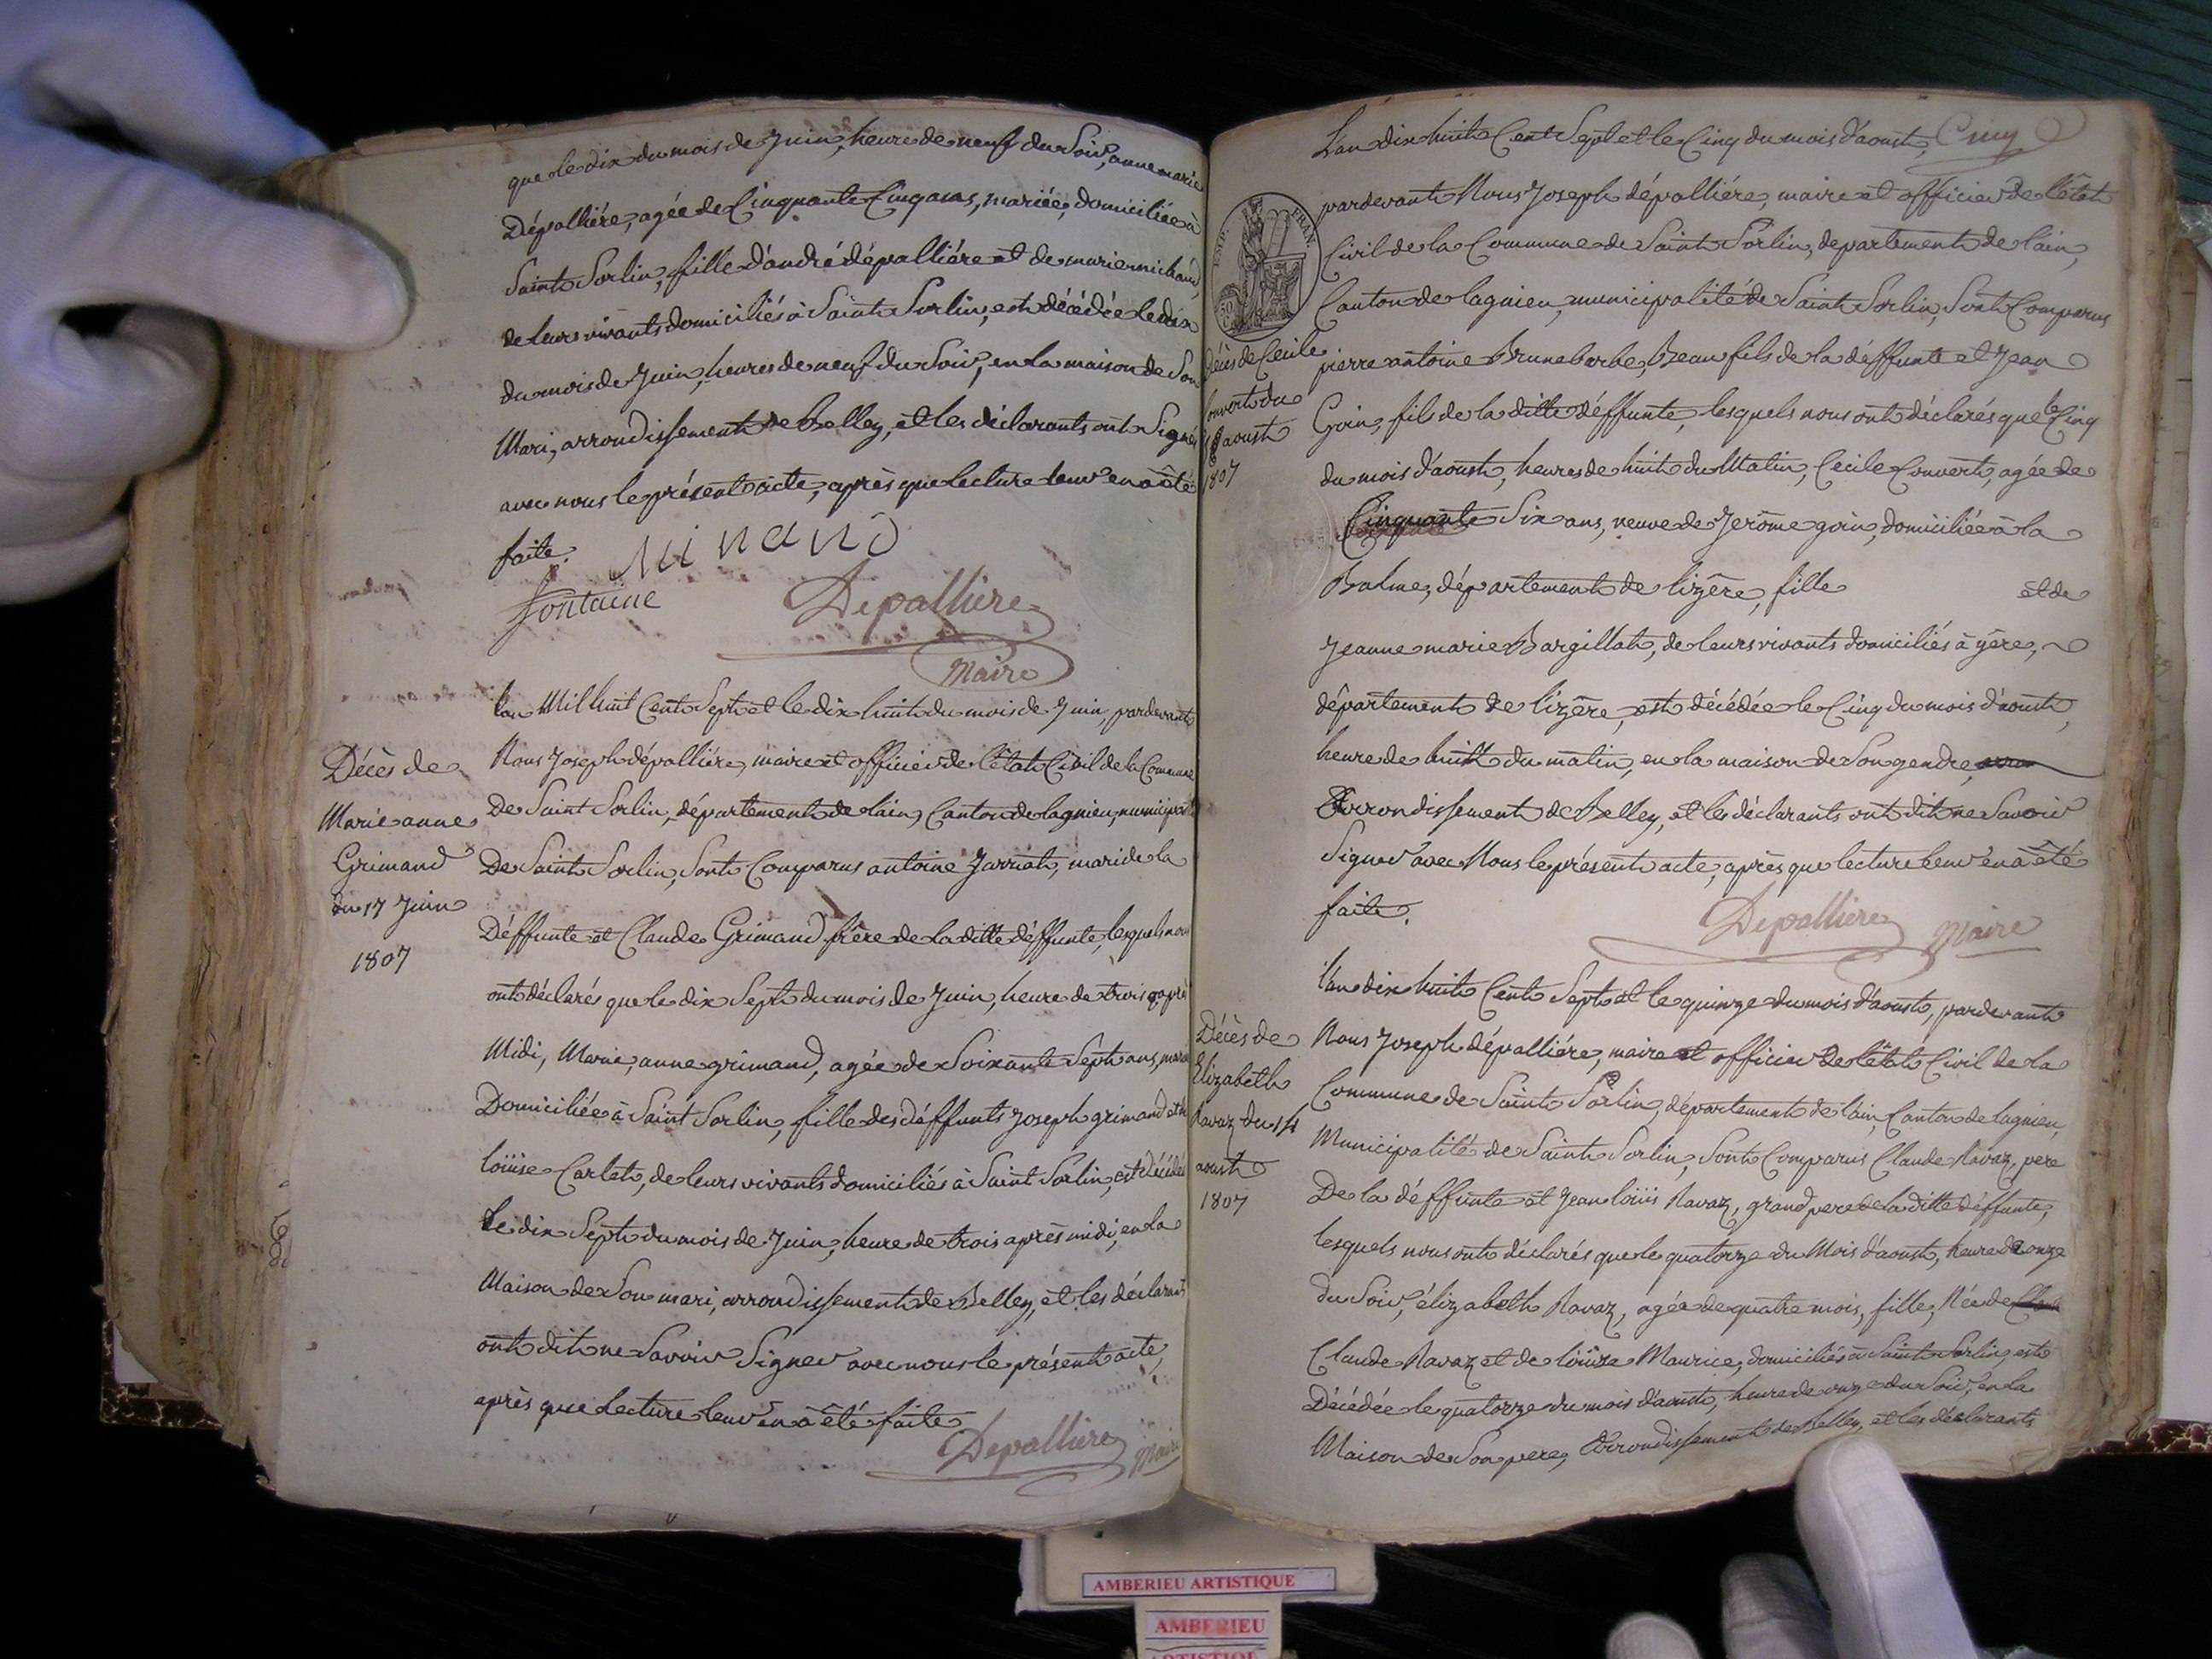 que le dix du mois de Juin, heure de neuf du Soir, anne marie
Dépalliére, agée de Cinquante Cinq ans, mariée, domiciliée à
Saint Sorlin, fille d'andré dépalliére et de marie michaud,
de leurs vivants domiciliés à Saint Sorlin, est décédée le dix
du mois de Juin, heures de neuf du Soir, en la maison de Son
Mari, arrondissement de Belley, et les déclarants ont Signés
avec nous le présent acte, après que lecture leur en a été
faite.
fontaine
Depalliere
Maire
Décès de
Marie anne
Grimand
du 17 Juin
1807
L'an Mil huit Cent Sept et le dix huit du mois de Juin, pardevant
Nous Joseph dépalliére, maire et officier de l'état Civil de la Commune
De Saint Sorlin, département de l'ain, Canton de lagnieu, municipalité
De Saint Sorlin, Sont Comparus antoine Jarriat, mari de la
Déffunte et Claude Grimand frère de la ditte déffunte, lesquels nous
ont déclarés que le dix Sept du mois de Juin, heure de trois après
Midi, Marie anne grimand, agée de Soixante Sept ans,
Domiciliée à Saint Sorlin, fille des déffunts Joseph grimand et de
loüise Carlet, de leurs vivants domiciliés à Saint Sorlin, est décédée
le dix Sept du mois de Juin, heure de trois après midi, en la
Maison de Son mari, arrondissement de Belley, et les déclarant
ont dit ne Savoir Signer avec nous le présent acte,
après que lecture leur en a été faite
Depalliere Maire
L'an dix huit Cent Sept et le Cinq du mois d'aoust, Cinq
pardevant Nous Joseph dépalliére, maire et officier de l'état
Civil de la Commune de Saint Sorlin, departement de l'ain,
Canton de lagnieu, municipalité de Saint Sorlin, Sont Comparus
pierre antoine Brunebarbe, Beau fils de la déffunte et Jean
Goin, fils de la ditte déffunte, lesquels nous ont déclarés que le Cinq
du mois d'aoust, heures de huit du Matin, Cecile Convert, agée de
Cinquante Six ans, veuve de Jerôme goin, domiciliée à la
Balme, département de l'izère, fille et de
Jeanne marie Bargillat, de leurs vivants domiciliés à yère,
département de l'izère, est décédée le Cinq du mois d'aoust,
heure de huit du matin, en la maison de Son gendre,
Arrondissement de Belley, et les déclarants ont dit ne Savoir
Signer avec Nous le présent acte, après que lecture leur en a été
faite.
Depalliere Maire
EMP. FRAN.
Décès de Cecile
Convert du
aoust
1807
Décès de
Elizabeth
Ravaz du 14
aoust
1807
L'an dix huit Cent Sept et le quinze du mois d'aoust, pardevant
Nous Joseph dépalliére, maire et officier de l'état Civil de la
Commune de Saint Sorlin, département de l'ain, Canton de lagnieu,
Municipalité de Saint Sorlin, Sont Comparus Claude Ravaz, pere
De la déffunte et Jean loüis Ravaz, grand pere de la ditte déffunte,
lesquels nous ont déclarés que le quatorze du Mois d'aoust, heure de onze
du Soir, élizabeth Ravaz, agée de quatre mois, fille, Née de
Claude Ravaz et de loüize Maurice, domiciliés à Saint Sorlin, est
Décédée le quatorze du mois d'aoust, heure de onze du Soir, en la
Maison de Son pere, Arrondissement de Belley, et les déclarants
AMBERIEU ARTISTIQUE
AMBERIEU
ARTISTIQUE